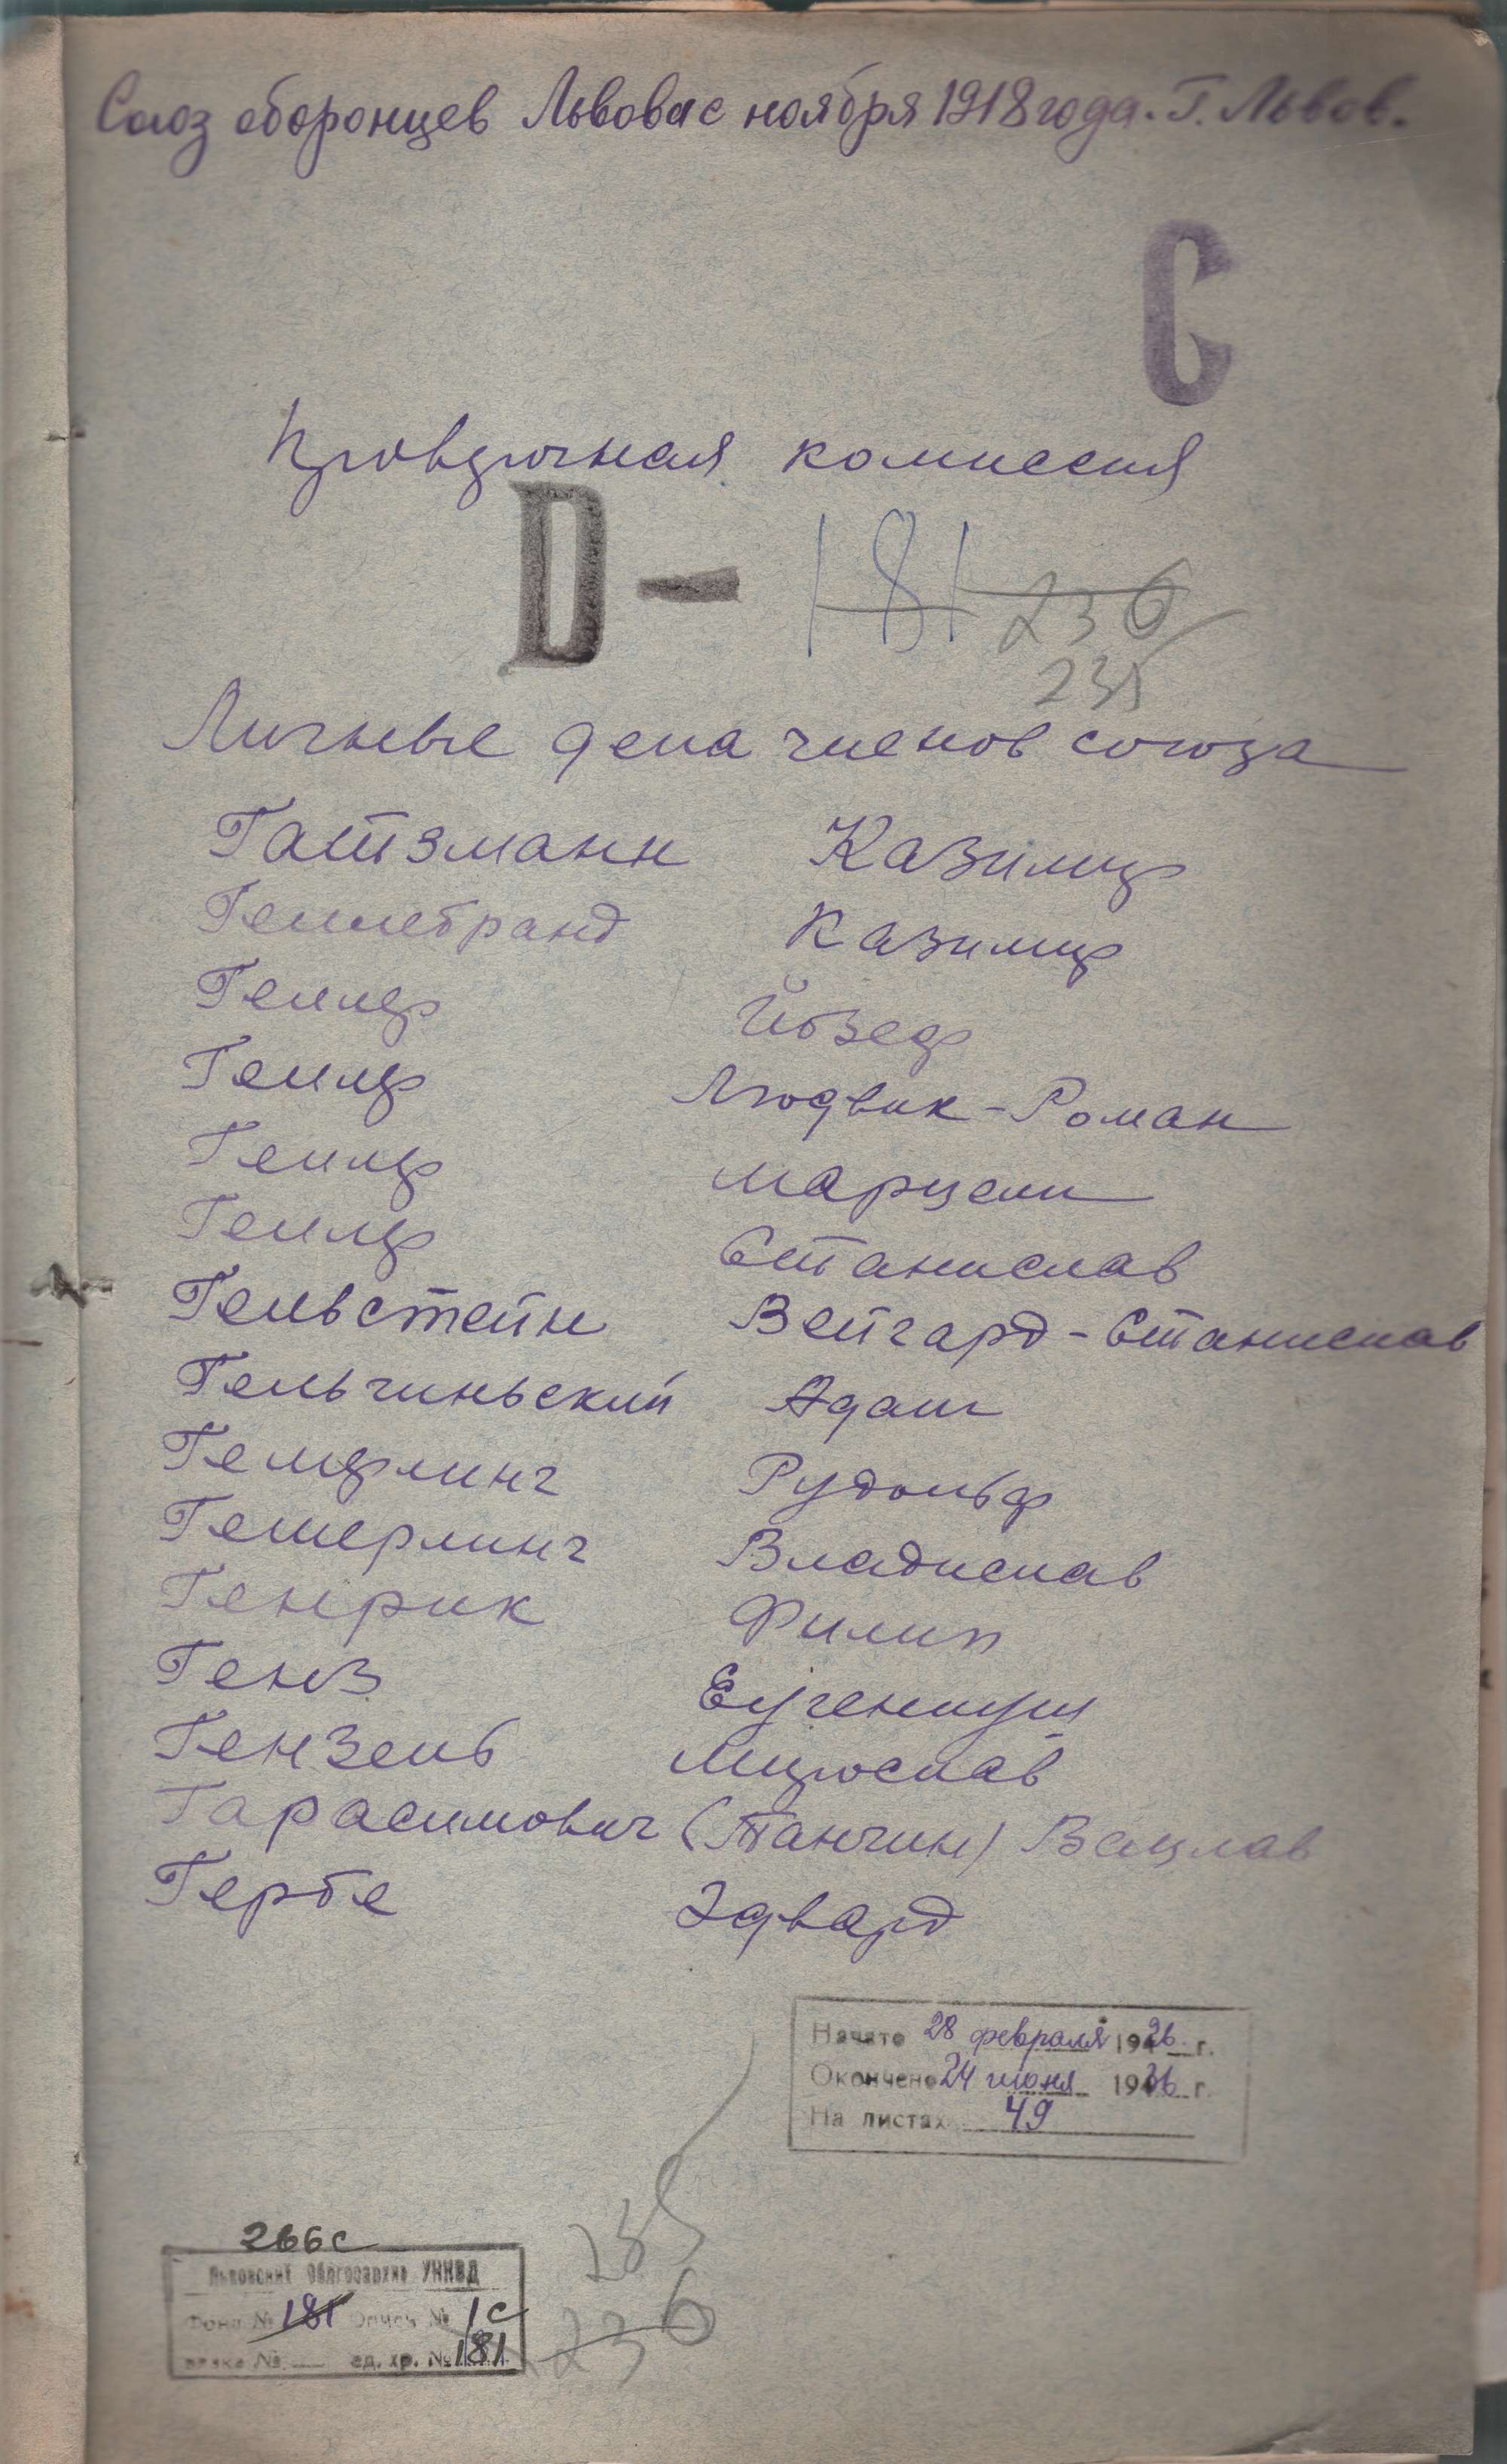 Союз оборонцев Львова с ноября 1918 года. Г. Львов.
С
комиссия
D - 181 236
235
Личные дела членов союза
Гатзманн Казимир
Геллебранд Казимир
Геллер Йозеф
Геллер Людвик-Роман
Геллер Марцели
Геллер Станислав
Гельвстейн Вейгард-Станислав
Гельчиньский Адам
Гемфлинг Рудольф
Гемерлинг Владислав
Генрик Филип
Генз Еугениуш
Гензель Мирослав
Гарасимович (Танчин) Вацлав
Гербе Эдвард
Начато 28 февраля 1926 г.
Окончено 24 июня 1936 г.
На листах 49
235
236
266с
Львовский Облгосархив УНКВД
Фонд № 181 Опись № 1с
вязка № ед. хр. № 181